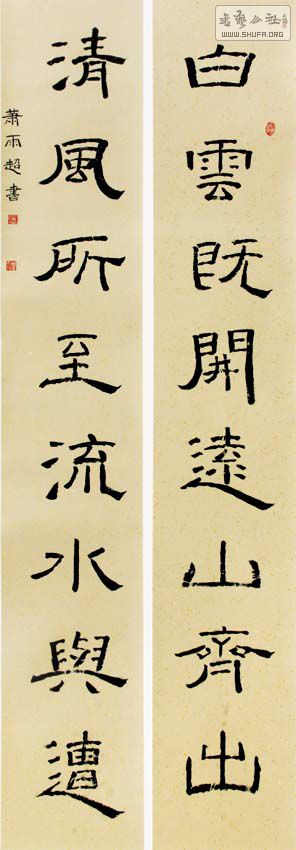 白雲既開遠山齊出
清風所至流水與遭
蕭雨超書
書藝公社
www.SHUFA.ORG